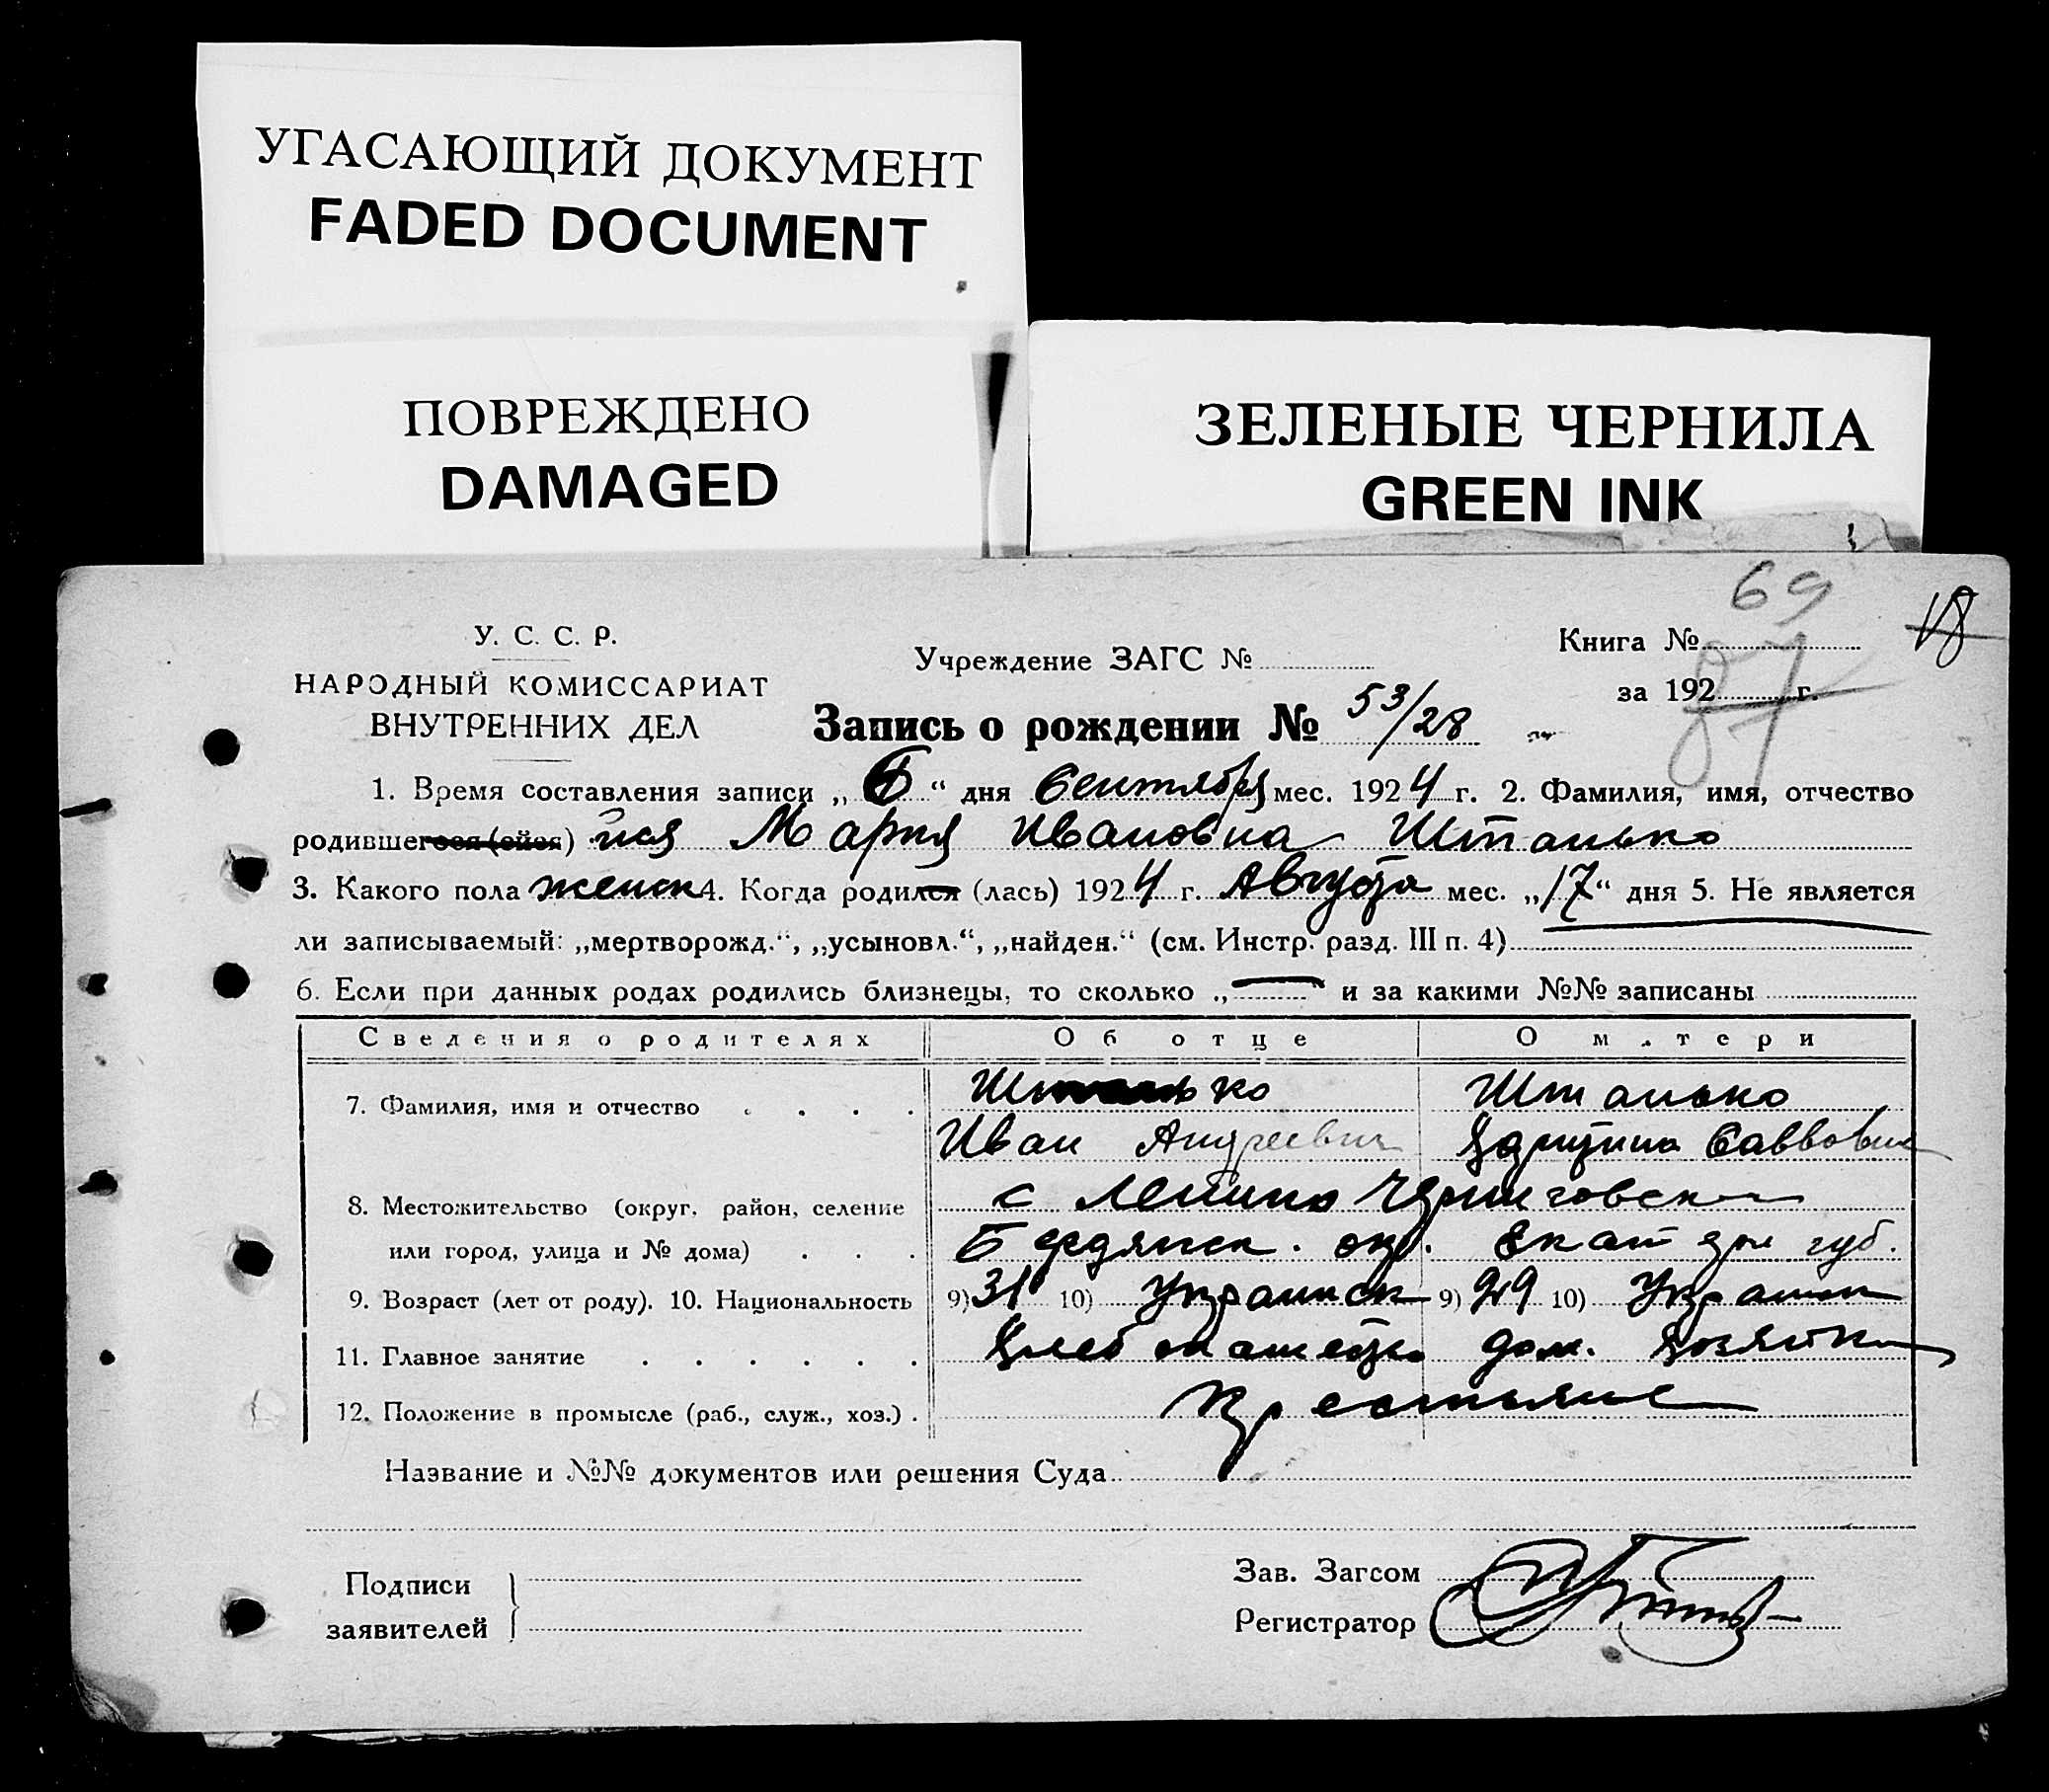 УГАСАЮЩИЙ ДОКУМЕНТ
FADED DOCUMENT
ПОВРЕЖДЕНО
DAMAGED
ЗЕЛЕНЫЕ ЧЕРНИЛА
GREEN INK
69
18
87
У. С. С. Р.
НАРОДНЫЙ КОМИССАРИАТ
ВНУТРЕННИХ ДЕЛ
Учреждение ЗАГС №
Книга №
за 192 г.
Запись о рождении № 53/28
1. Время составления записи „ “ дня Сентября мес. 1924 г. 2. Фамилия, имя, отчество
родившегося (ейся) Мария Ивановна Штанько
3. Какого пола женск 4. Когда родился (лась) 1924 г. Августа мес. „17“ дня 5. Не является
ли записываемый: „мертворожд.“, „усыновл.“, „найден.“ (см. Инстр. разд. III п. 4)
6. Если при данных родах родились близнецы, то сколько „ “ и за какими №№ записаны
Сведения о родителях Об отце О матери
7. Фамилия, имя и отчество . . . . Штанько Штанько
Иван Андреевич Саввовна
8. Местожительство (округ, район, селение с
или город, улица и № дома) . . . Бердянск. окр. Екатер губ.
9. Возраст (лет от роду). 10. Национальность 9) 31 10) Украинск 9) 29 10) Украинк
11. Главное занятие . . . . . . Хлебопашество дом. Хозяйка
12. Положение в промысле (раб., служ., хоз.) . Крестьяне
Название и №№ документов или решения Суда
Подписи
заявителей
Зав. Загсом
Регистратор